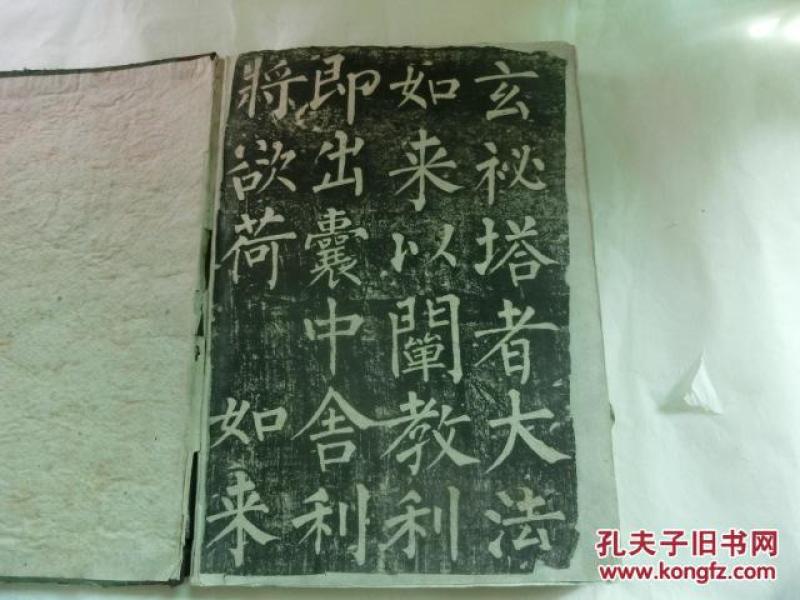 玄祕塔者大法
如来以闡教利
即出囊中舍利
將欲荷 如来
孔夫子旧书网
www.kongfz.com